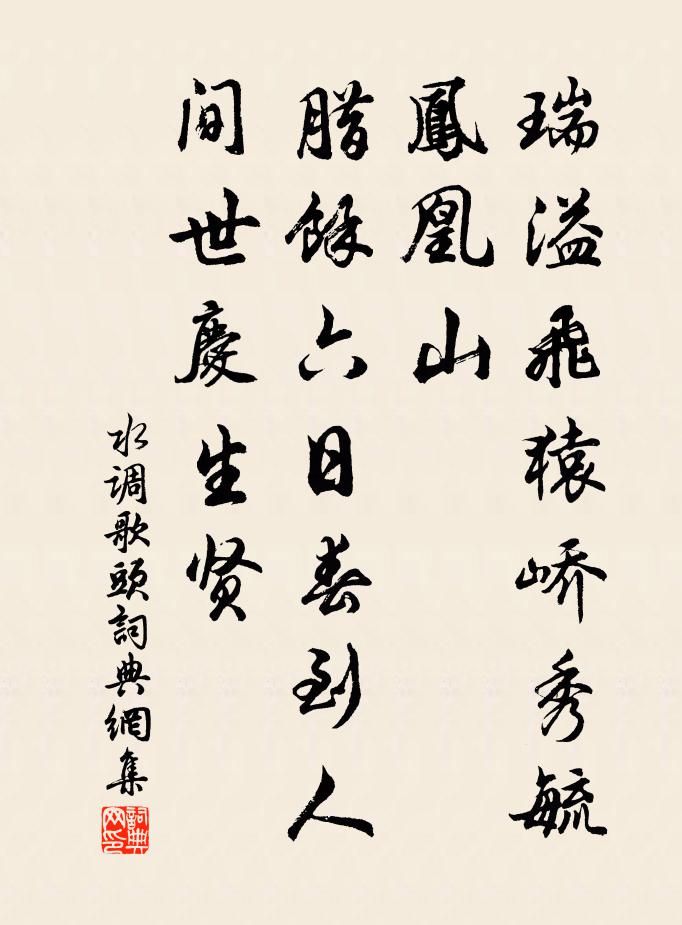 瑞溢飛猿峤秀毓
鳳凰山
腊餘六日春到人
间世慶生贤
水调歌頭詞典網集
詞典網印